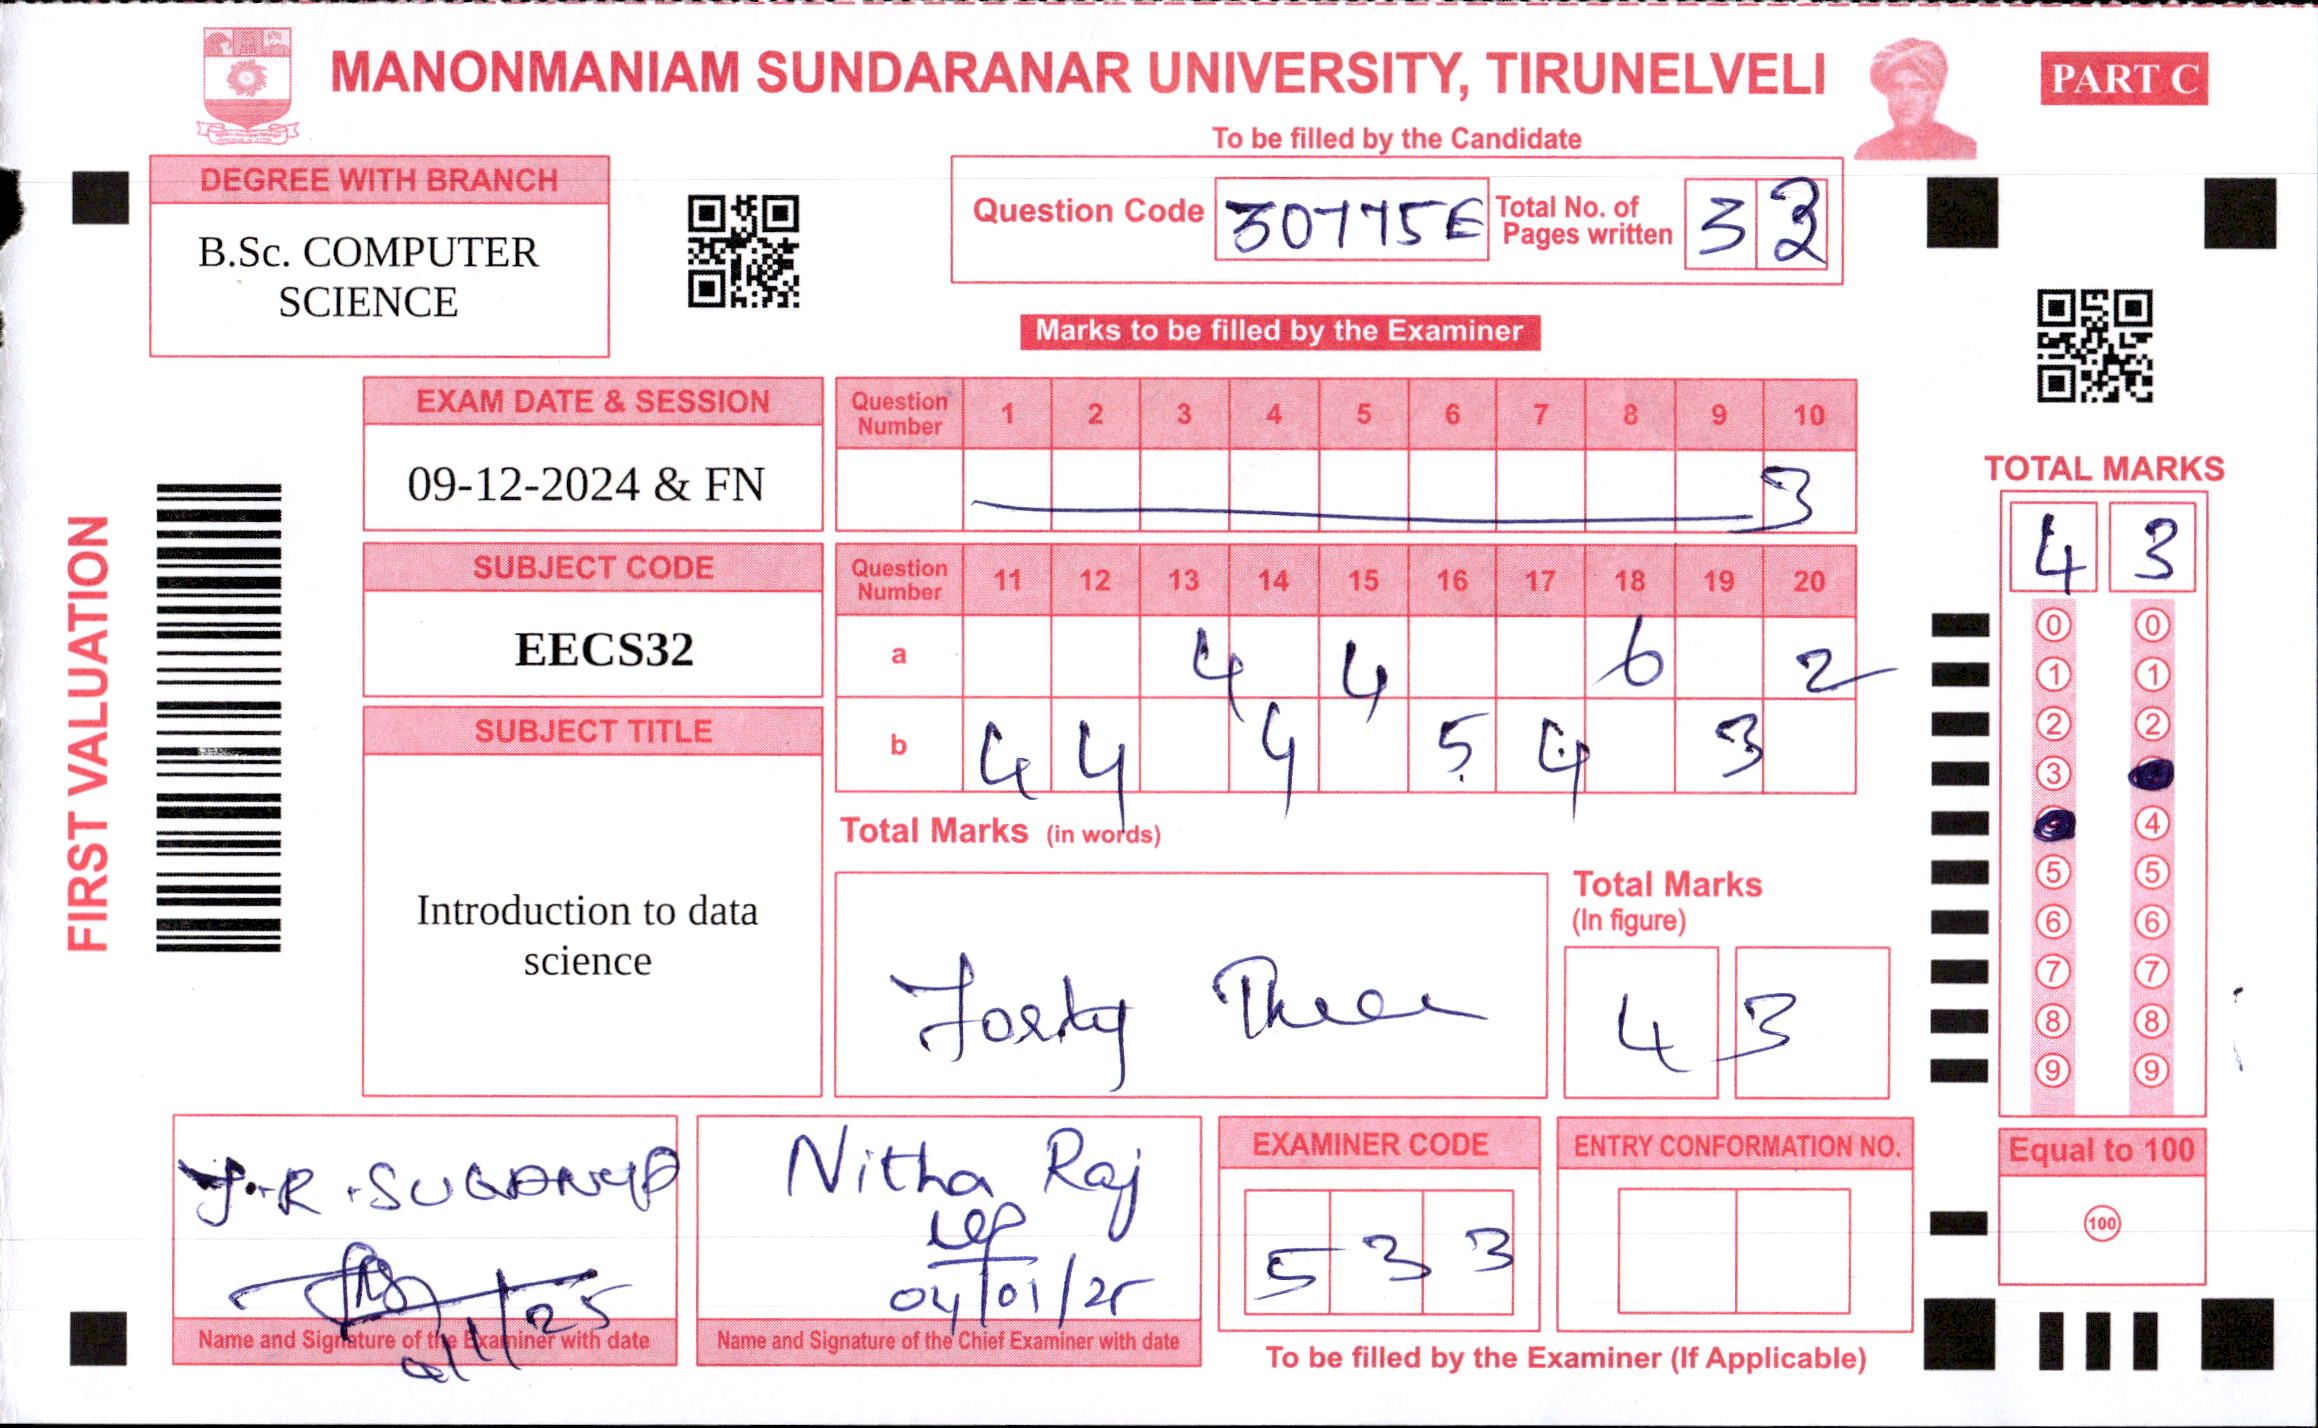 MANONMANIAM SUNDARANAR UNIVERSITY, TIRUNELVELI
PART C
To be filled by the Candidate
DEGREE WITH BRANCH
B.Sc. COMPUTER
SCIENCE
Question Code 30775E Total No. of Pages written 3 2
Marks to be filled by the Examiner
EXAM DATE & SESSION
09-12-2024 & FN
Question Number 1 2 3 4 5 6 7 8 9 10
3
SUBJECT CODE
EECS32
Question Number 11 12 13 14 15 16 17 18 19 20
a 4 4 6 2
b 4 4 4 5 4 3
SUBJECT TITLE
Introduction to data
science
Total Marks (in words)
Forty Three
Total Marks
(In figure)
4 3
FIRST VALUATION
TOTAL MARKS
4 3
0 0
1 1
2 2
3
4
5 5
6 6
7 7
8 8
9 9
Equal to 100
100
J.R. SUGANYA
Name and Signature of the Examiner with date
Nitha Raj
04/01/25
Name and Signature of the Chief Examiner with date
EXAMINER CODE
5 3 3
ENTRY CONFORMATION NO.
To be filled by the Examiner (If Applicable)